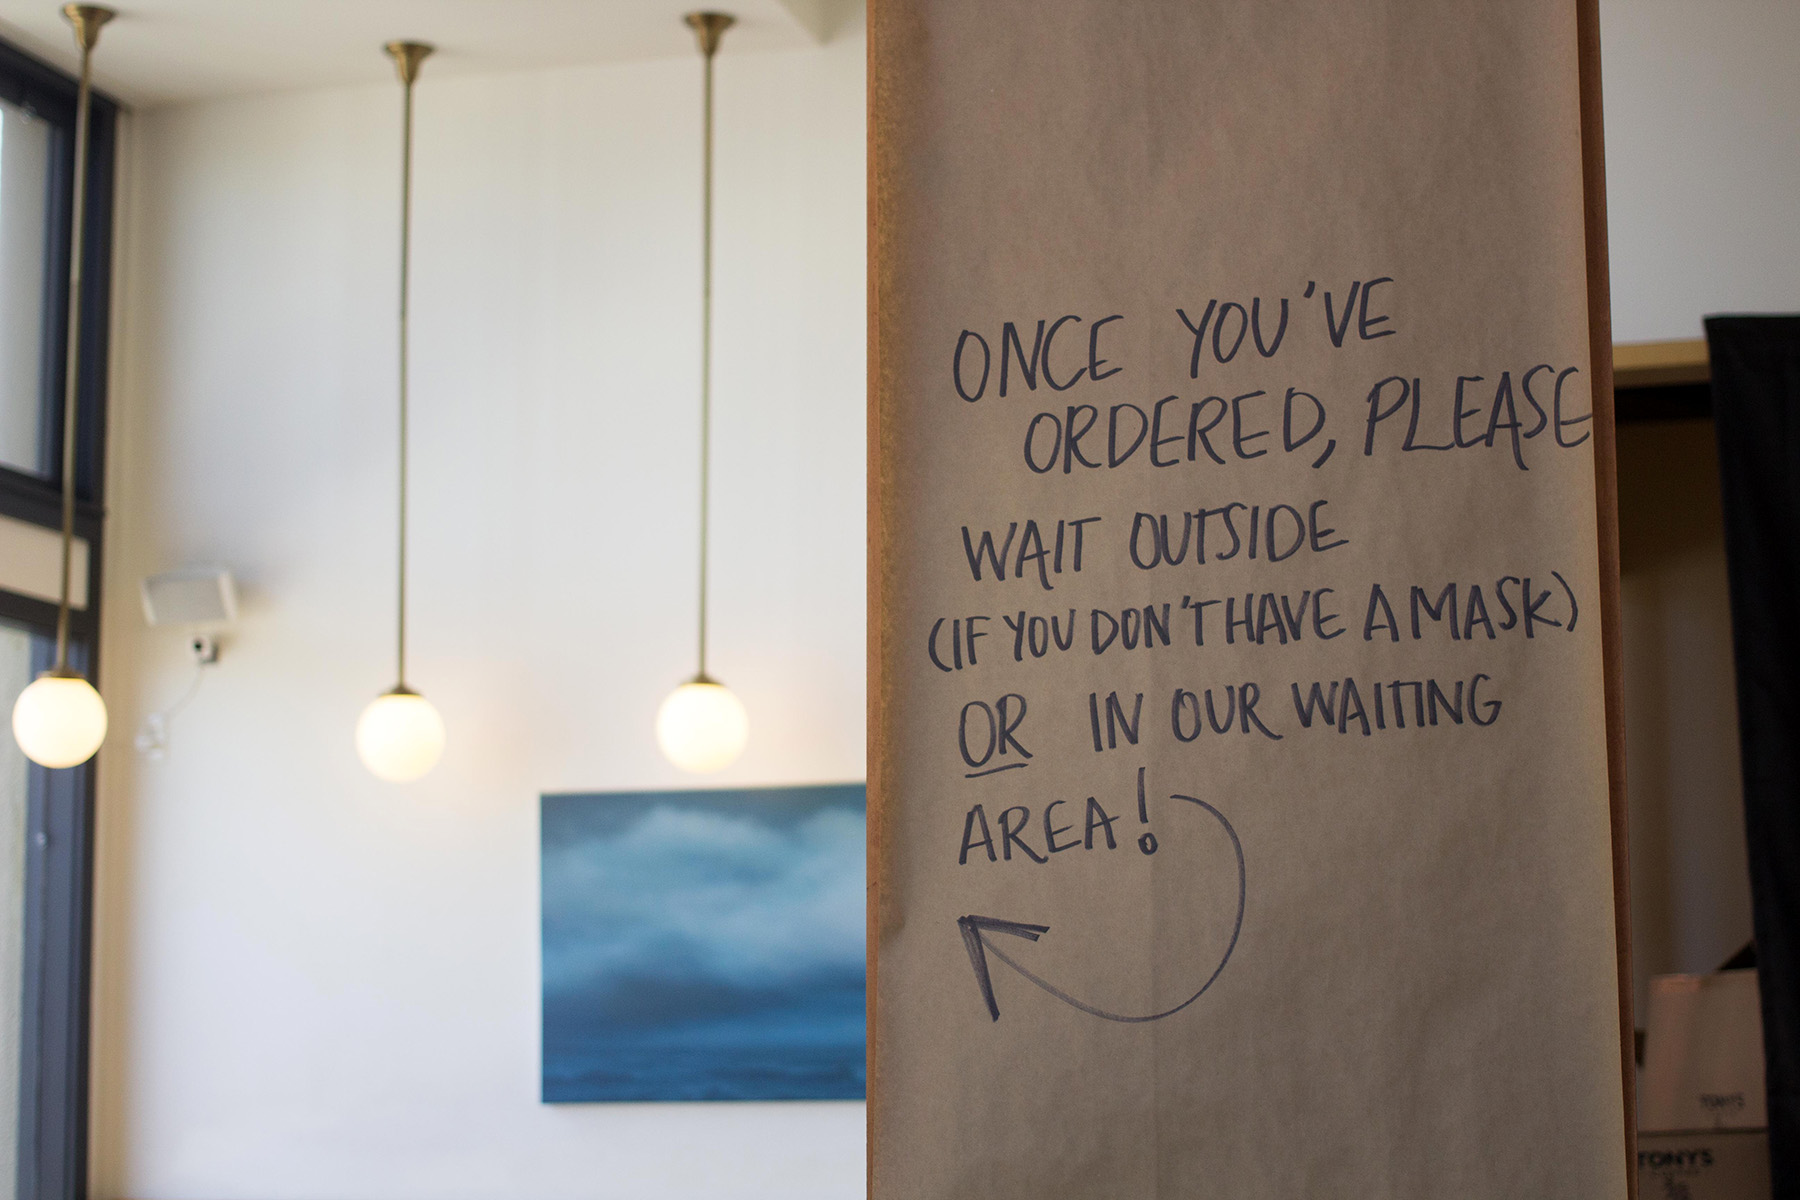 ONCE YOU'VE
ORDERED, PLEASE
WAIT OUTSIDE
(IF YOU DON'T HAVE A MASK)
OR IN OUR WAITING
AREA!
TONY'S
TONY'S